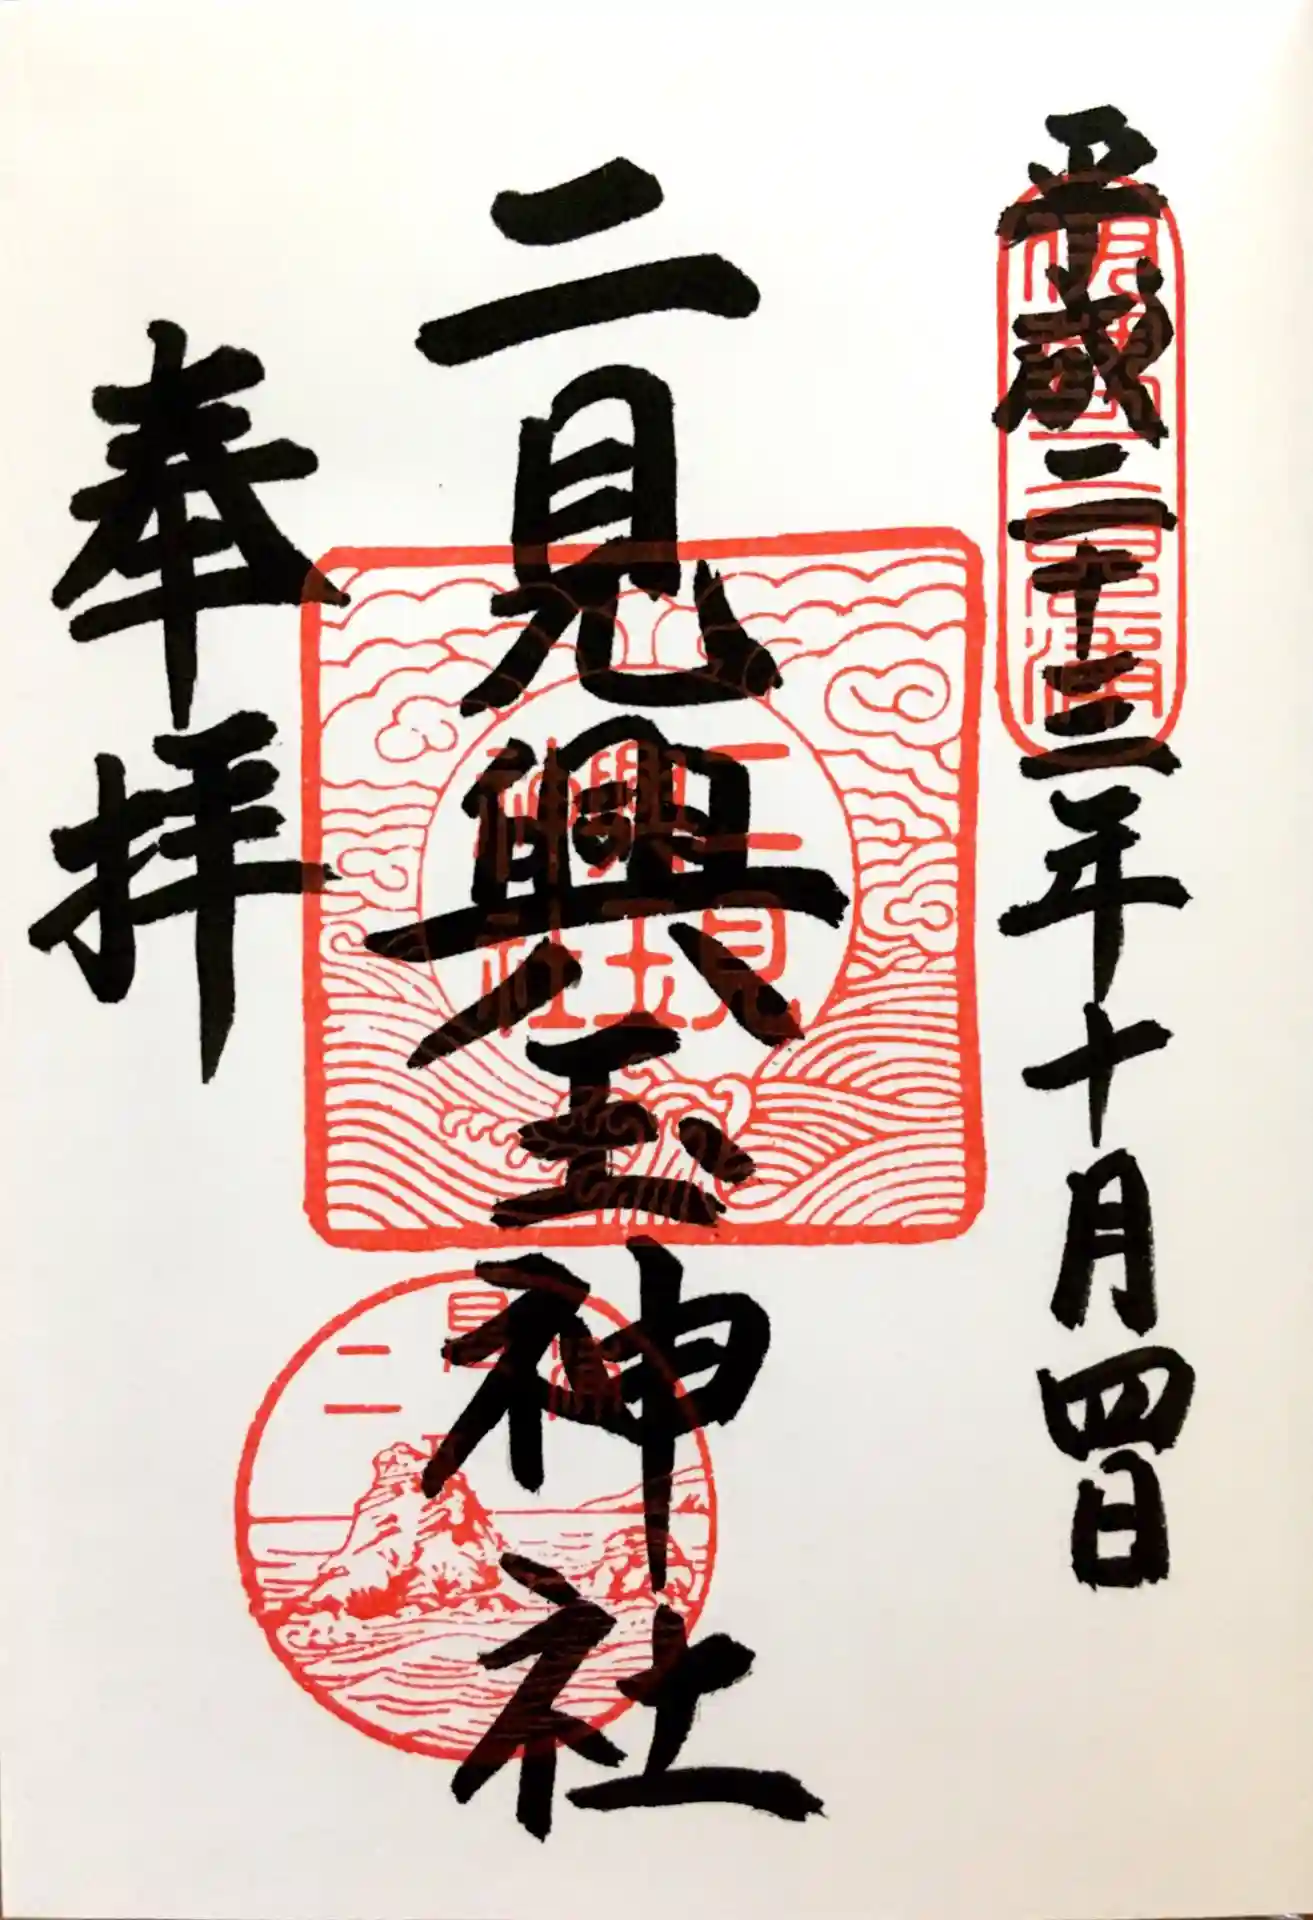 平成二十三年十月四日
二見興玉神社
奉拝
二見
興玉
神社
二見浦